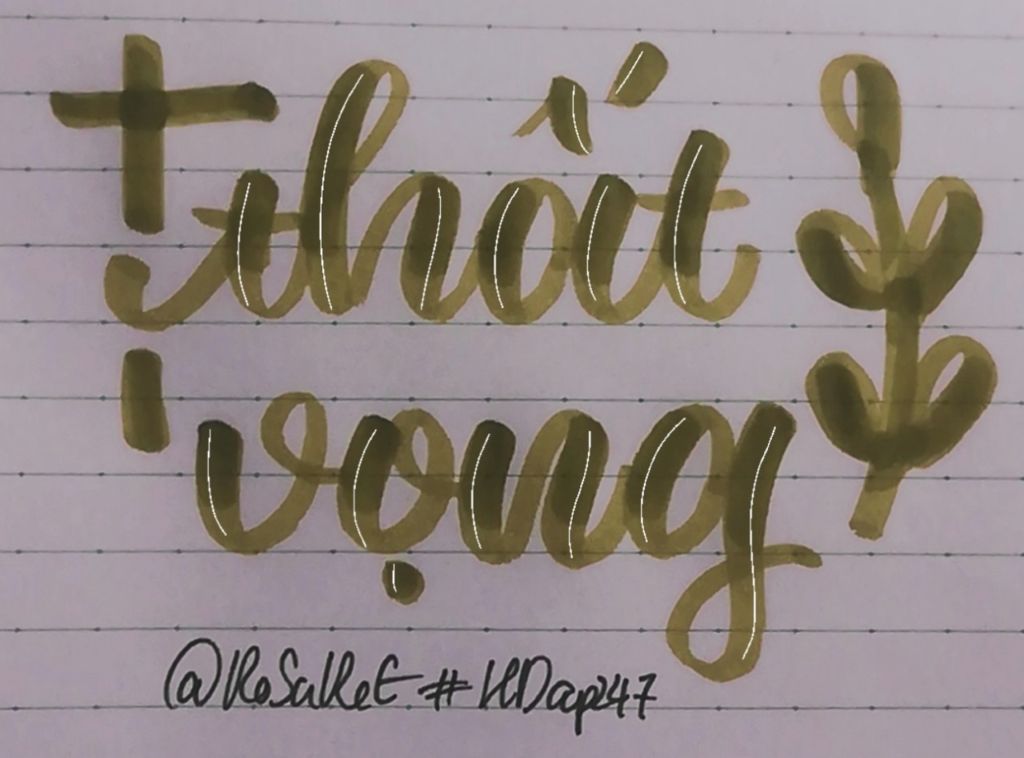 thất
vọng
@KoSuKeE #HDap247